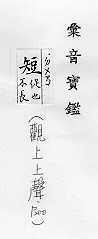 彙音寶鑑
短 促也
不長
(觀上上聲)